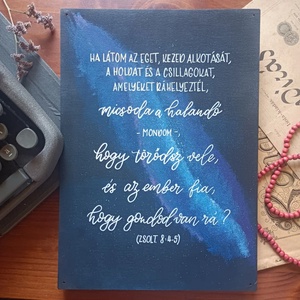 HA LÁTOM AZ EGET, KEZED ALKOTÁSÁT,
A HOLDAT ÉS A CSILLAGOKAT,
AMELYEKET RÁHELYEZTÉL,
micsoda a halandó
- MONDOM -,
hogy törődsz vele,
és az ember fia,
hogy gondod van rá?
(ZSOLT. 8:4-5)